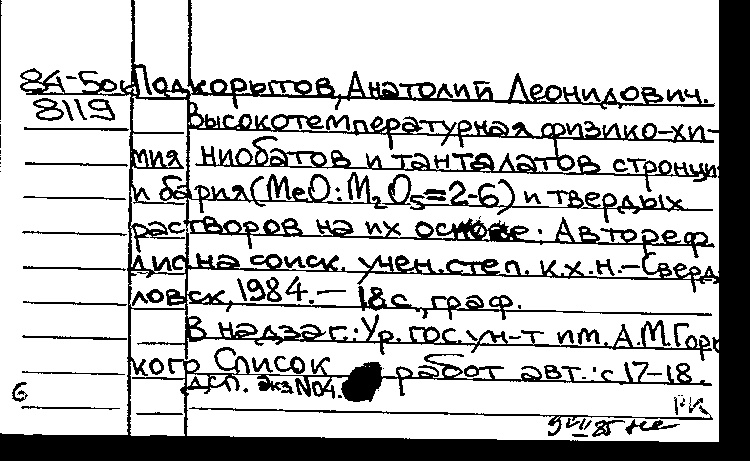 84-5ок Подкорытов, Анатолий Леонидович.
8119 Высокотемпературная физико-хи-
мия ниобатов и танталатов стронци
и бария (MeO:M₂O₅=2-6) и твердых
растворов на их основе: Автореф.
дис на соиск. учен. степ. к.х.н.-Сверд
ловск, 1984.- 18 с., граф.
В надзаг.: Ур. гос. ун-т им. А.М. Горь
кого Список работ авт.: с. 17-18.
ДСП. Экз N04.
6 РК